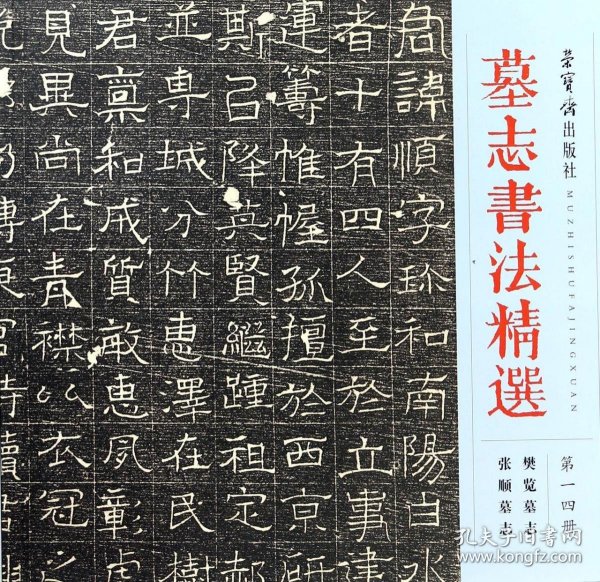 君諱順字珎和南陽白水
者十有四人至於立事建
運籌惟幄孤擅於西京研
斯已降英賢繼踵祖定郝
並専城分竹惠澤在民樹
君稟和成質敏惠夙彰虎
見異尚在青襟以衣冠之
荣寶齋出版社
墓志書法精選
MUZHISHUFAJINGXUAN
第一四册
樊览墓志
张顺墓志
孔夫子旧书网
www.kongfz.com